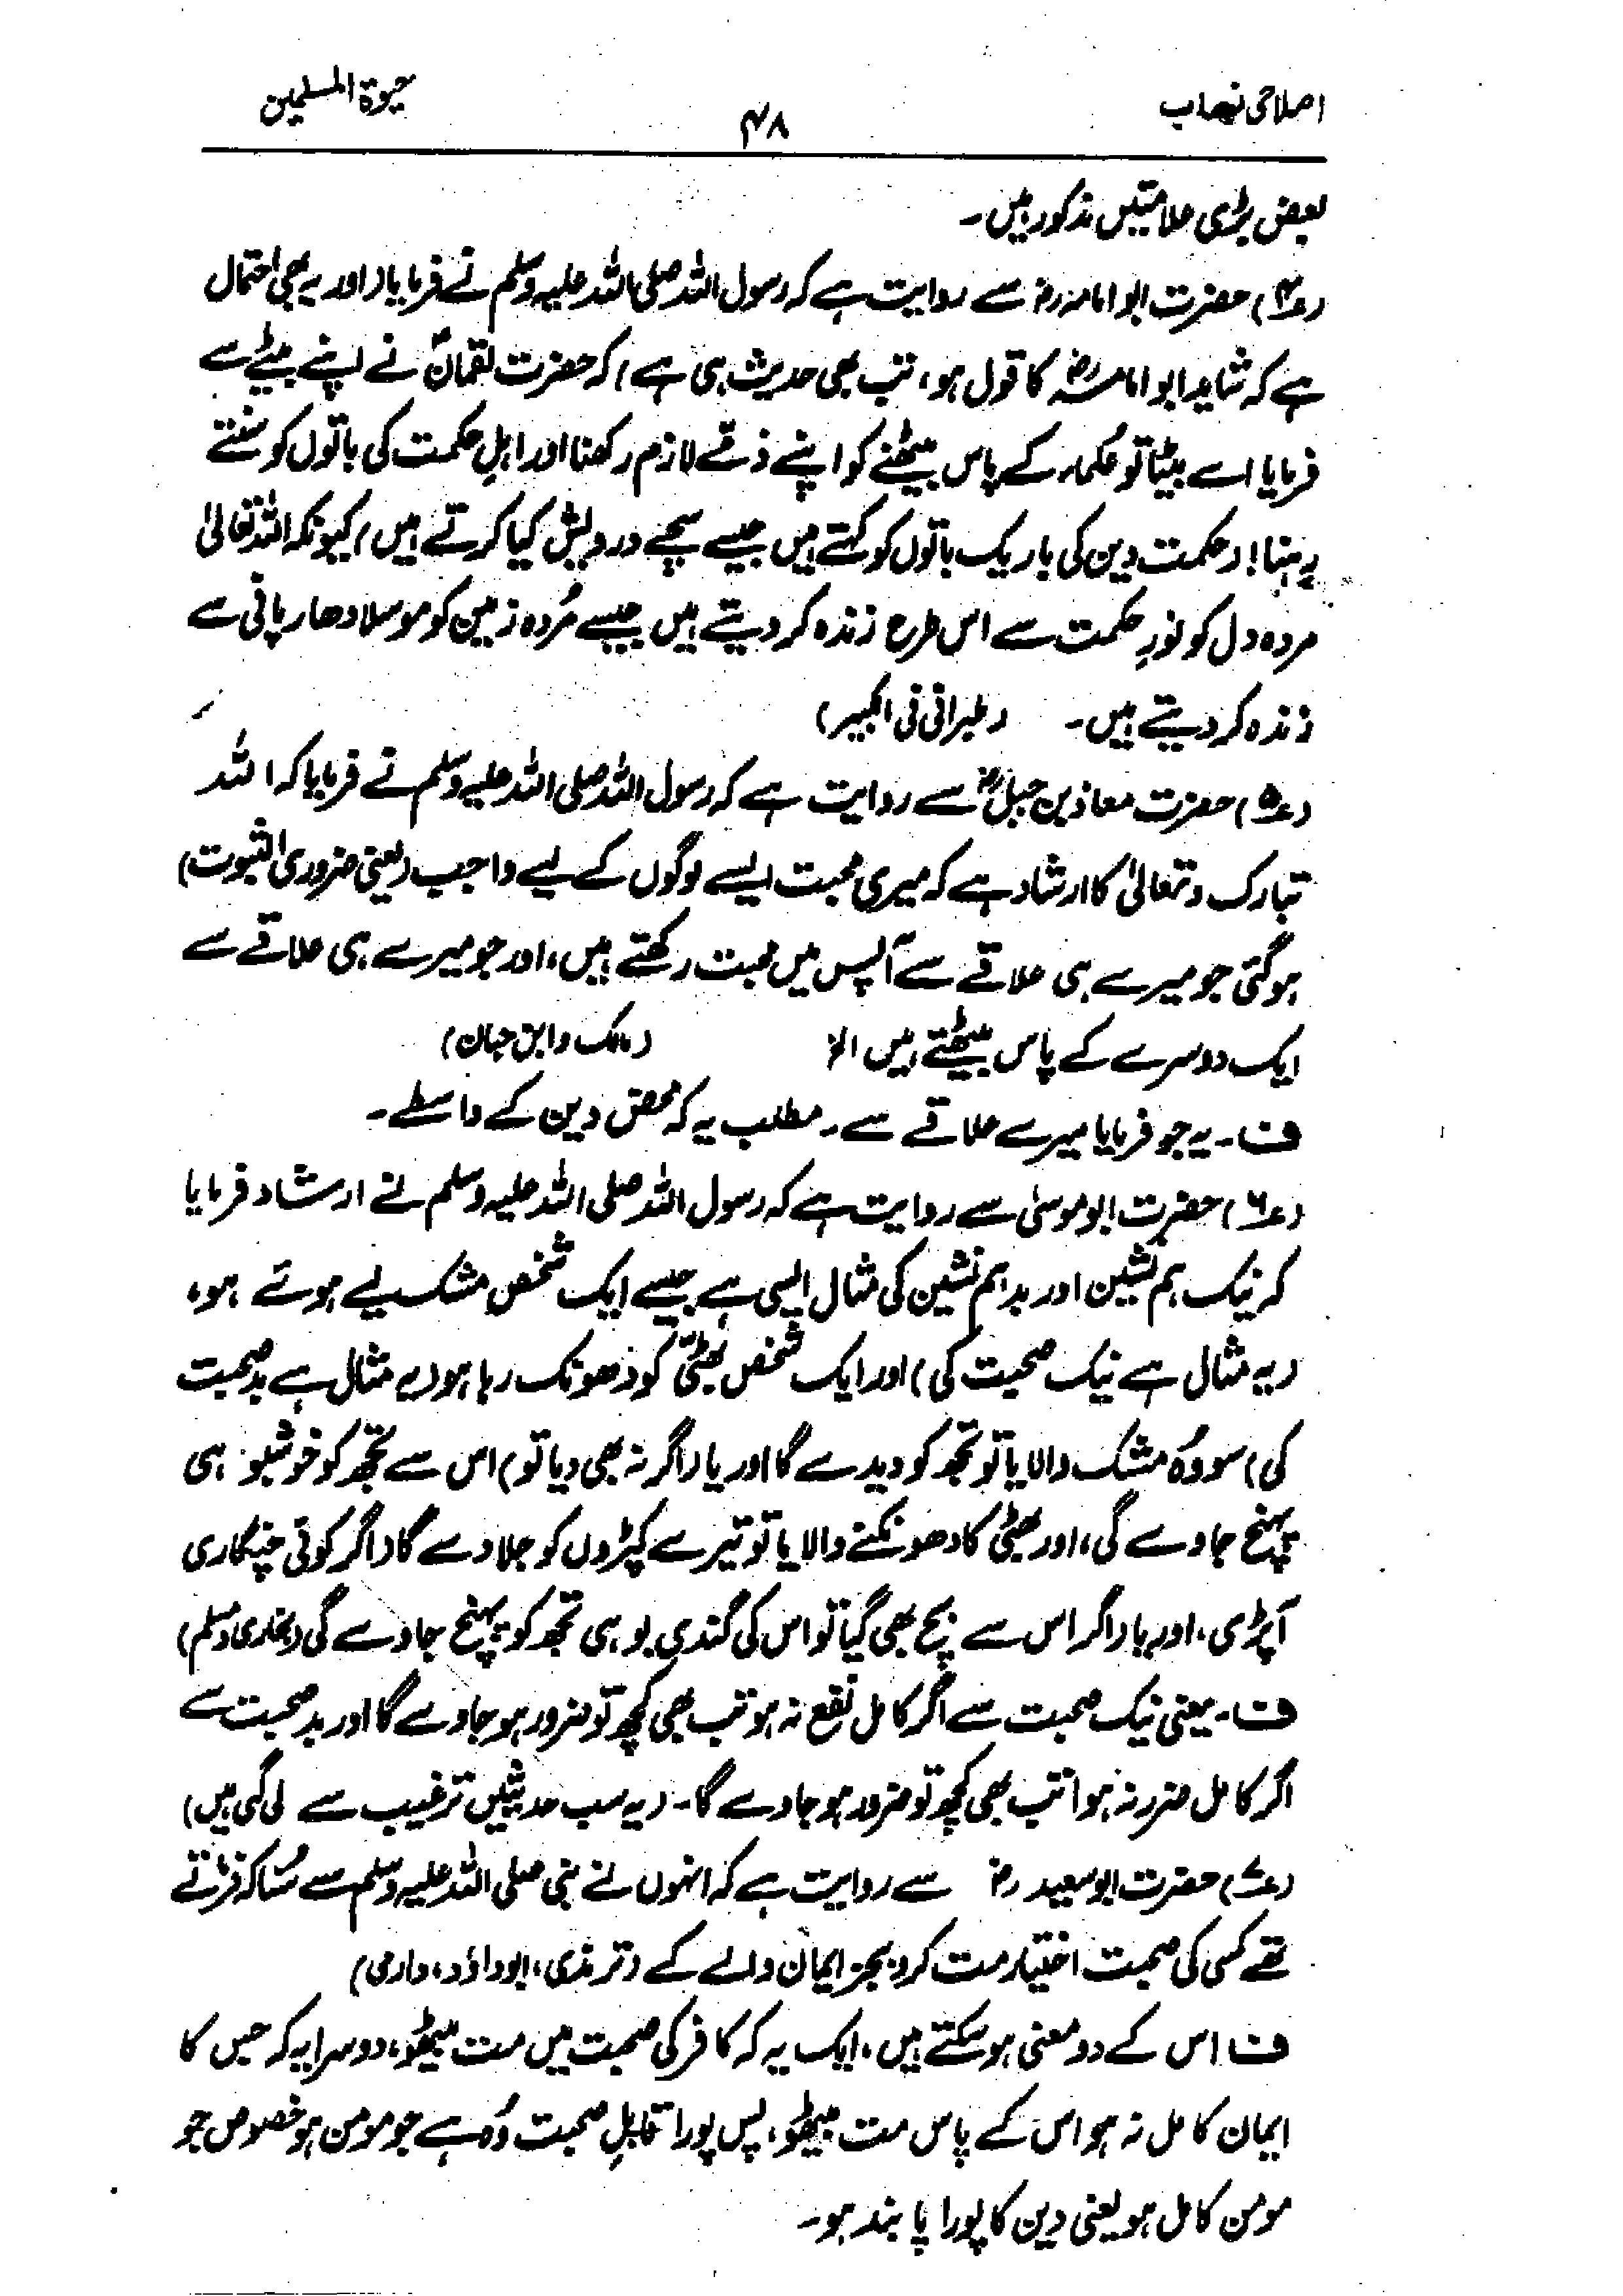 اصلاحی نصاب
۴۸
حیوۃ المسلمین
بعض بڑی علامتیں مذکور ہیں۔
(ع۴) حضرت ابو امامہ رض سے روایت ہے کہ رسول اللہ صلی اللہ علیہ وسلم نے فرمایا (اور یہ بھی احتمال
ہے کہ شاید ابو امامہؓ کا قول ہو، تب بھی حدیث ہی ہے) کہ حضرت لقمانؑ نے اپنے بیٹے سے
فرمایا اے بیٹا تو حکماء کے پاس بیٹھنے کو اپنے ذمّے لازم رکھنا اور اہلِ حکمت کی باتوں کو سنتے
رہنا! (حکمت دین کی باریک باتوں کو کہتے ہیں جیسے سچے درویش کیا کرتے ہیں) کیونکہ اللہ تعالیٰ
مردہ دل کو نورِ حکمت سے اس طرح زندہ کر دیتے ہیں جیسے مُردہ زمین کو موسلا دھار پانی سے
زندہ کر دیتے ہیں۔ (طبرانی فی الکبیر)
(ع۵) حضرت معاذ بن جبلؓ سے روایت ہے کہ رسول اللہ صلی اللہ علیہ وسلم نے فرمایا کہ اللہ
تبارک وتعالیٰ کا ارشاد ہے کہ میری محبت ایسے لوگوں کے لیے واجب (یعنی ضروری الثبوت)
ہو گئی جو میرے ہی علاقے سے آپس میں محبت رکھتے ہیں، اور جو میرے ہی علاقے سے
ایک دوسرے کے پاس بیٹھتے ہیں الخ (مالک و ابن حبان)
ف۔ یہ جو فرمایا میرے علاقے سے۔ مطلب یہ کہ محض دین کے واسطے۔
(ع۶) حضرت ابو موسیٰ سے روایت ہے کہ رسول اللہ صلی اللہ علیہ وسلم نے ارشاد فرمایا
کہ نیک ہم نشین اور بد ہم نشین کی مثال ایسی ہے جیسے ایک شخص مشک لیے ہوئے ہو،
(یہ مثال ہے نیک صحبت کی) اور ایک شخص بھٹّی کو دھونک رہا ہو (یہ مثال ہے بد صحبت
کی) سو وُہ مشک والا یا تو تجھ کو دیدے گا اور یا (اگر نہ بھی دیا تو) اس سے تجھ کو خوشبو ہی
پہنچ جاوے گی، اور بھٹی کا دھونکنے والا یا تو تیرے کپڑوں کو جلا دے گا (اگر کوئی چنگاری
آپڑی، اور یا (اگر اس سے بچ بھی گیا تو اس کی گندی بو ہی تجھ کو پہنچ جاوے گی (بخاری ومسلم)
ف۔ یعنی نیک صحبت سے اگر کامل نفع نہ ہو تب بھی کچھ تو ضرور ہو جاوے گا اور بد صحبت سے
اگر کامل ضرر نہ ہوا تب بھی کچھ تو ضرور ہو جاوے گا۔ (یہ سب حدیثیں ترغیب سے لی گئی ہیں)
(ع۷) حضرت ابو سعید رض سے روایت ہے کہ انہوں نے نبی صلی اللہ علیہ وسلم سے سُنا کہ فرماتے
تھے کسی کی صحبت اختیار مت کرو بجز ایمان والے کے (ترمذی، ابو داؤد، دارمی)
ف اس کے دو معنی ہو سکتے ہیں، ایک یہ کہ کافر کی صحبت میں مت بیٹھو، دوسرا یہ کہ جس کا
ایمان کامل نہ ہو اس کے پاس مت بیٹھو، پس پورا قابلِ صحبت وُہ ہے جو مومن ہو خصوص جو
مومن کامل ہو یعنی دین کا پورا پابند ہو۔